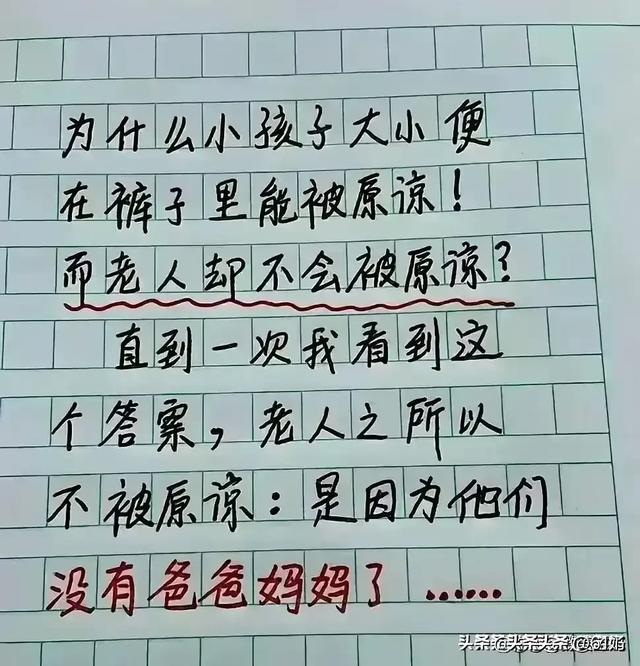 为什么小孩子大小便
在裤子里能被原谅！
而老人却不会被原谅？
直到一次我看到这
个答案，老人之所以
不被原谅：是因为他们
没有爸爸妈妈了……